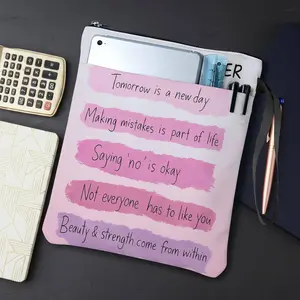 ER
Tomorrow is a new day
Making mistakes is part of life
Saying 'no' is okay
Not everyone has to like you
Beauty & strength come from within